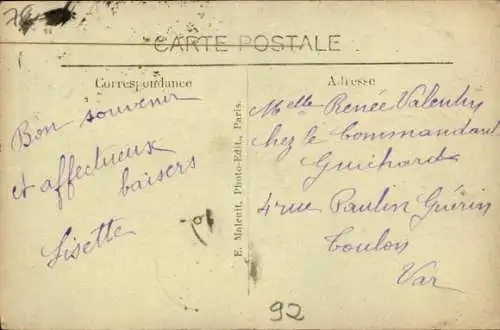 78
CARTE POSTALE
Correspondance
Adresse
Bon souvenir
et affectueux
baisers
Lisette
E. Maleuit, Photo-Edit., Paris.
Melle Renée Valentry
chez le Commandant
Guichard
4 rue Paulin Guérin
Toulon
Var
92